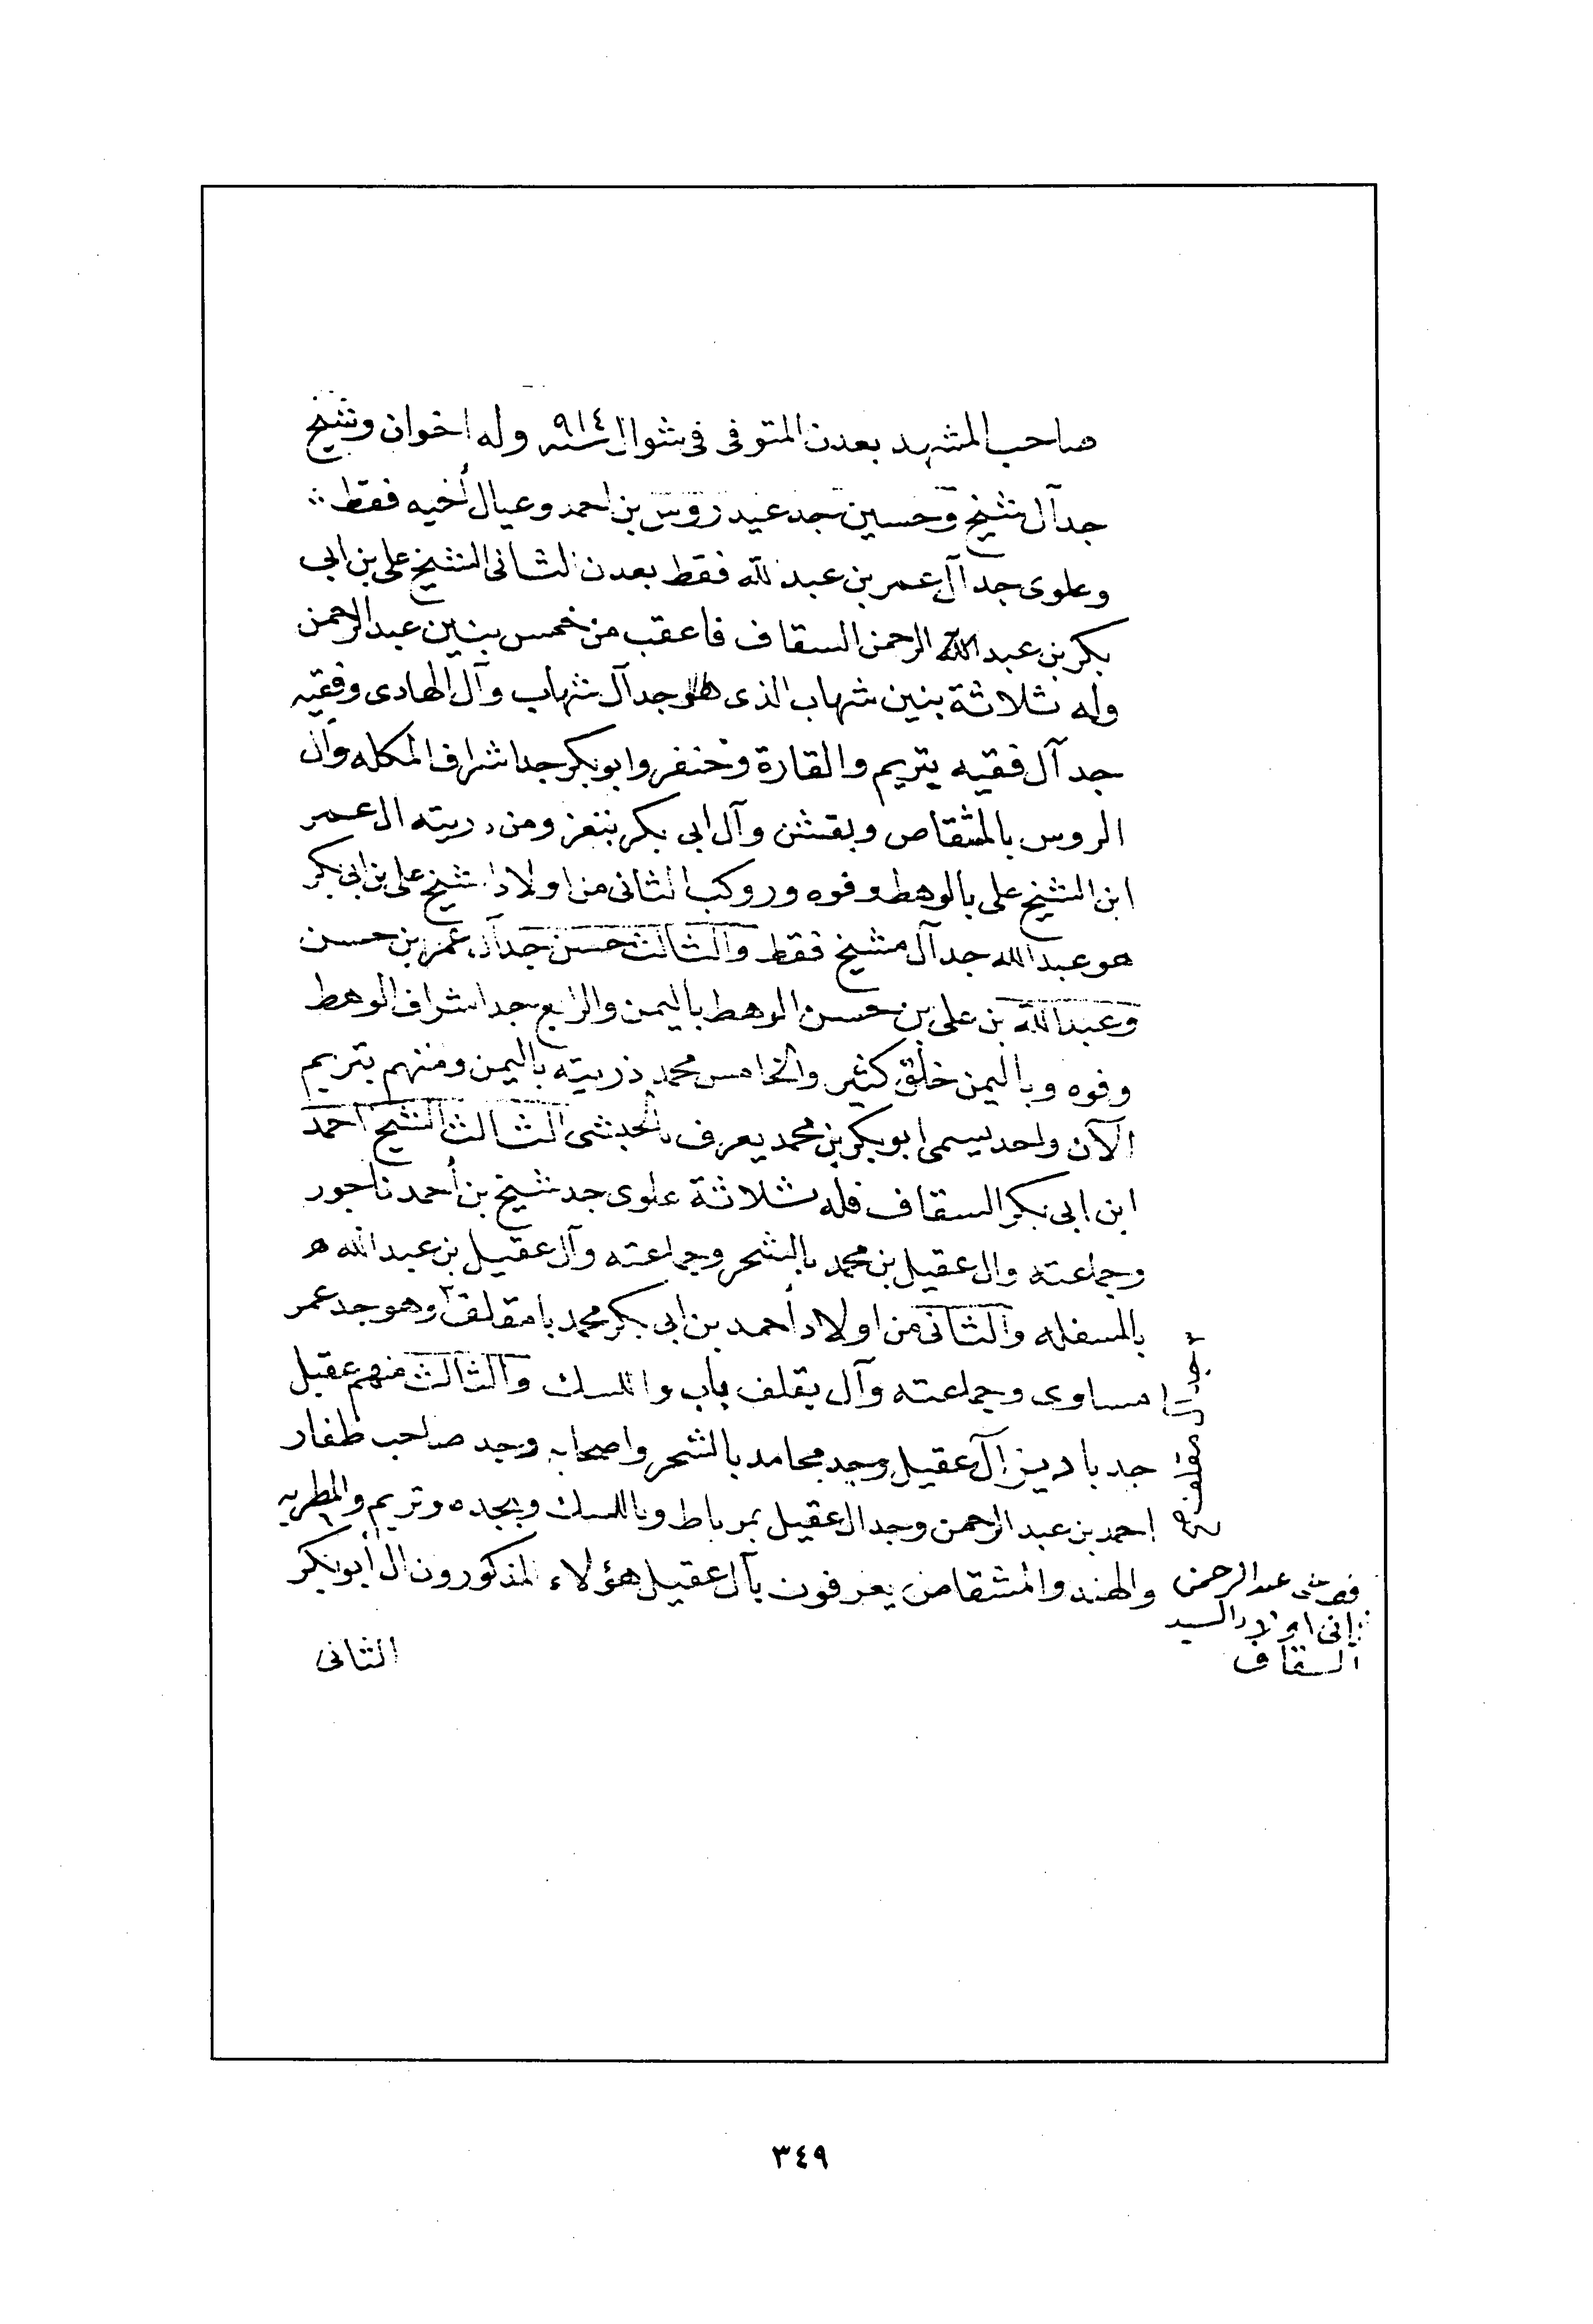 صاحب المشهد بعدن المتوفى فى شوال سنه ٩١٤ وله اخوان وشيخ
جد آل شيخ وحسين جد عيدروس بن احمد وعيال أخيه فقط
وعلوى جد آل عمر بن عبدالله فقط بعدن الثانى الشيخ على بن ابى
بكر بن عبد الرحمن السقاف فاعقب من خمس بنين عبدالرحمن
وله ثلاثة بنين شهاب الذى هو جد آل شهاب وآل الهادى وفقيه
جد آل فقيه بتريم والقارة وخنفر وابوبكر جد اشراف المكله وآل
الروس بالمشقاص وبقشن وآل ابى بكر بتعز ومن ذريته ال عمر
ابن الشيخ على بالوهط وفوه وروكب الثانى من اولاد شيخ على بن ابى بكر
هو عبدالله جد آل مشيخ فقط والثالث حسن جد آل عمر بن حسن
وعبدالله بن على بن حسن الوهط باليمن والرابع جد اشراف الوهط
وفوه وباليمن خلق كثير والخامس محمد ذريته باليمن ومنهم بتريم
الآن واحد يسمى ابوبكر بن محمد يعرف بالحبشى الثالث الشيخ احمد
ابن ابى بكر السقاف فله ثلاثة علوى جد شيخ بن أحمد ناجور
وجماعته وال عقيل بن محمد بالشحر وجماعته وآل عقيل بن عبدالله
بالمسفله والثانى من اولاد أحمد بن ابى بكر محمد بامقلف وهو جد عمر
مساوى وجماعته وآل بقلف باب والليسك والثالث منهم عقيل
جد با آل عقيل وجد محامد بالشحر واصحابه وجد صاحب ظفار
احمد بن عبد الرحمن وجد ال عقيل بمرباط وبالليسك وبجده وتريم
والهند والمشقاص يعرفون بآل عقيل هؤلاء المذكورون ال أبوبكر
الثانى
عبد الرحمن
ثانى اولاد السيد
السقاف
٣٤٩